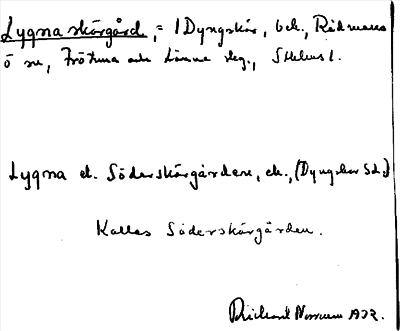 Lygna skärgård, = 1 Dyngskär, beb., Rådmans
ö sn, Frötuna och Länna skg., Sthlms l.
Lygna el. Söderskärgården, ek., (Dyngskär Sd.)
Kallas Söderskärgården.
Rickard Norrum 1932.